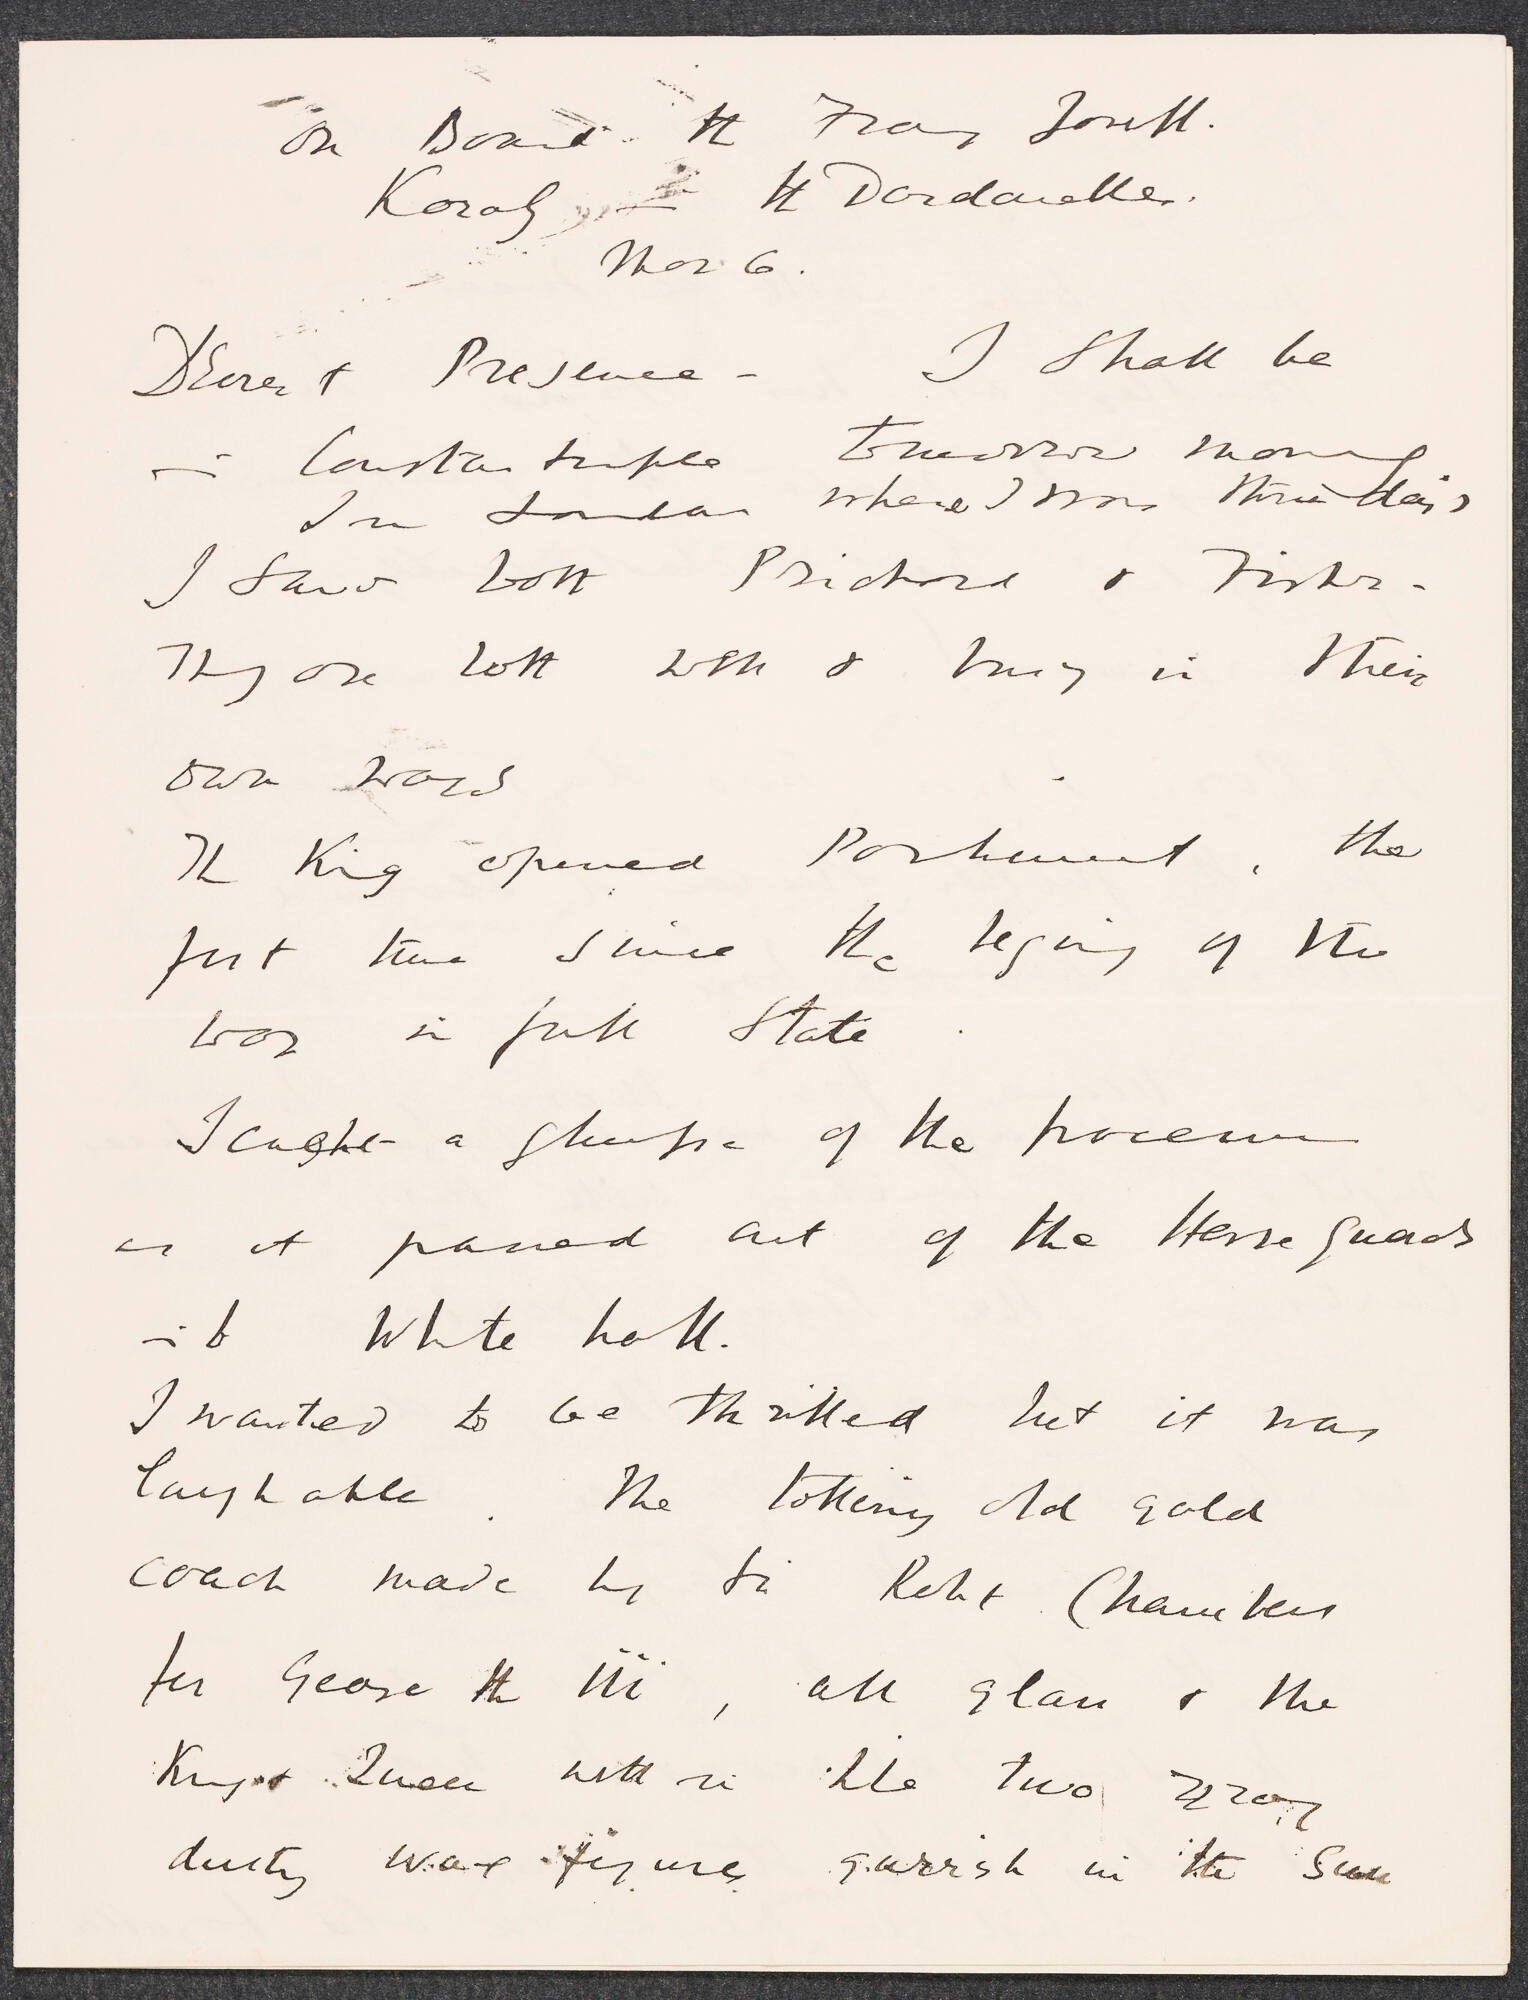 On Board the Franz Joseph.
Koraly — the Dardanelles.
Mar 6.
Dearest Presence - I shall be
in Constantinople tomorrow morning
In London where I was three days
I saw both Prichard & Fisher -
They are both well & busy in their
own ways
The King opened Parliament, the
first time since the begining of the
war in full State.
I caught a glimpse of the procession
as it passed out of the Horse Guards
into White hall.
I wanted to be thrilled but it was
laughable. The tottering old gold
coach made by Sir Robt Chambers
for George the III, all glass & the
King & Queen within like two
dusty wax figures garrish in the Sun